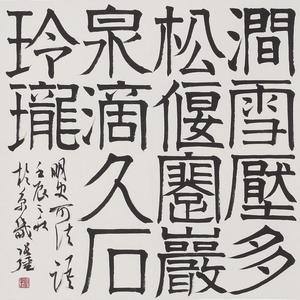 澗雪壓多
松偃蹇巖
泉滴久石
玲瓏
明史可法語
壬辰之秋
於京